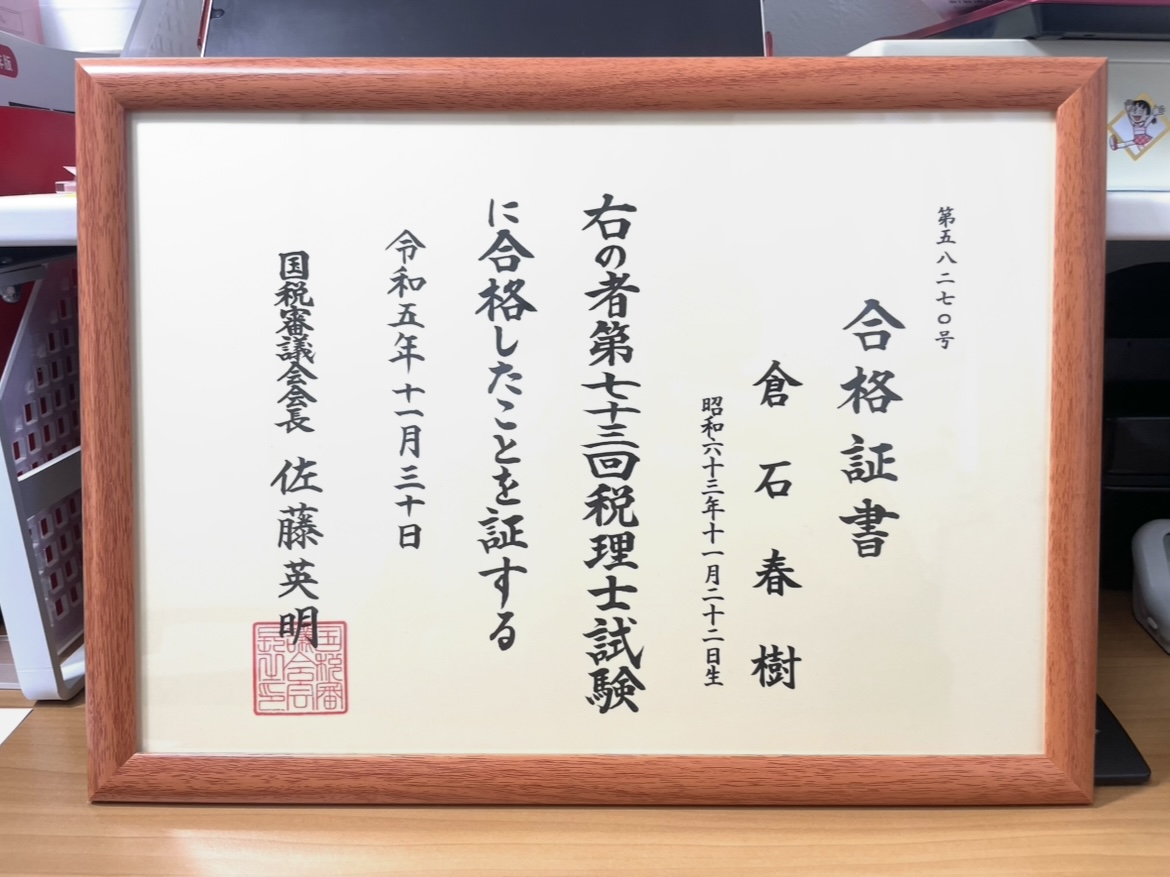 第五八二七〇号
合格証書
倉石春樹
昭和六十三年十一月二十二日生
右の者第七十三回税理士試験
に合格したことを証する
令和五年十一月三十日
国税審議会会長 佐藤英明
国税審
議会会
長之印
年版